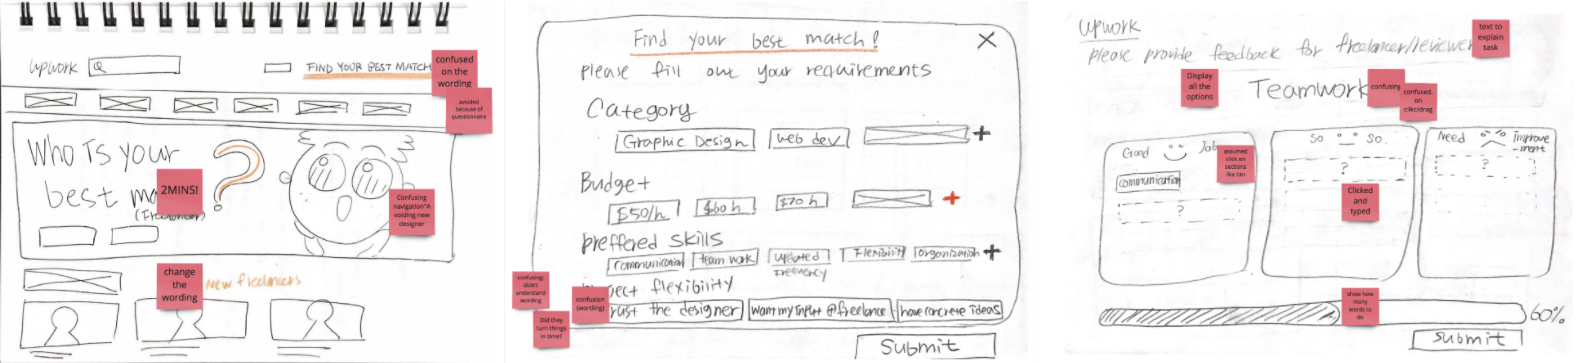 upwork Q FIND YOUR BEST MATCH
confused on the wording
avoided because of questionnaire
Who Is your
best
(Freelancer)
?
2MINS!
Confusing navigation"A voiding new designer
change the wording
new freelancers
Find your best match! X
please fill out your requirements
Category
Graphic Design web dev +
Budget
$50/h $60h $70h +
preffered skills
communication team work updated frequency Flexibility organization +
flexibility
the designer want my input @freelance have concrete ideas
confusing, didn't understand wording
confusion (wording)
Did they turn things in time?
Submit
upwork
please provide feedback for freelancer/reviewer
text to explain task
Display all the options
Teamwork
confusing
confused on clikc/drag
Good Job
So So
Need Improve-ment
assumed click on sections like btn
communication
?
?
?
Clicked and typed
show how many words to do
60%
Submit